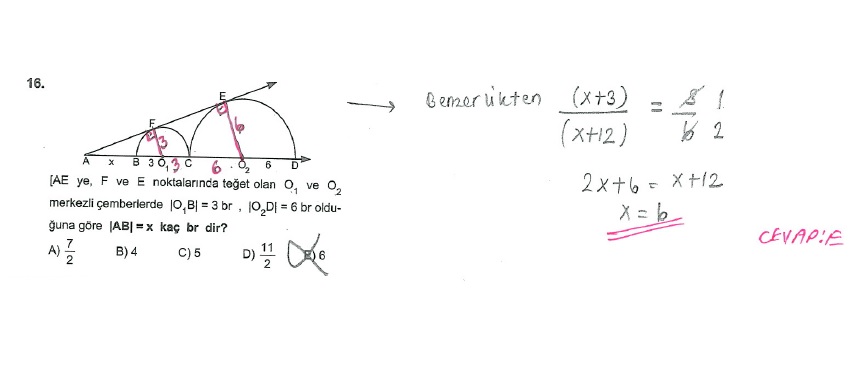 16.
E
F
6
3
A x B 3 O₁ 3 C 6 O₂ 6 D
[AE ye, F ve E noktalarında teğet olan O₁ ve O₂
merkezli çemberlerde |O₁B| = 3 br , |O₂D| = 6 br oldu-
ğuna göre |AB| = x kaç br dir?
A) 7/2 B) 4 C) 5 D) 11/2 E) 6
Benzerlikten (x+3)/(x+12) = 3/6 1/2
2x+6 = x+12
x = 6
CEVAP:E